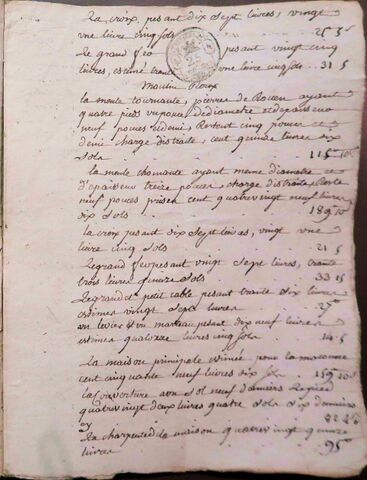 La croix, pesant dix sept livres, vingt
une livre cinq sols 25 5
Le grand pesant vingt cinq
livres, estimé trente une livre cinq sols 31 5
Moulin
La meule tournante, pierre de Rouen ayant
quatre pieds un pouce de diametre et depaisseur
neuf pouces et demi, Restent cinq pouces et
demi charge distraite, cent quinze livres dix
Sols 115 10
La meule ayant meme diametre et
d'epaisseur treize pouces, charge distraite
neuf pouces prisée cent quatre vingt neuf livres
dix sols 189 10
La croix pesant dix sept livres, vingt une
livre cinq sols 21 5
Le grand pesant vingt sept livres, trente
trois livres quinze sols 33 15
Le grand et petit cable pesant trente six livres
estimés vingt sept livres
un levier et un marteau pesant dix neuf livres
estimés quatorze livres cinq sols 14 5
La maison principale estimée pour la maconne
cent cinquante neuf livres dix sols 159 10
La couverture
quatre vingt deux livres quatre sols six deniers
La charpente de la maison quatre vingt quinze
livres 95